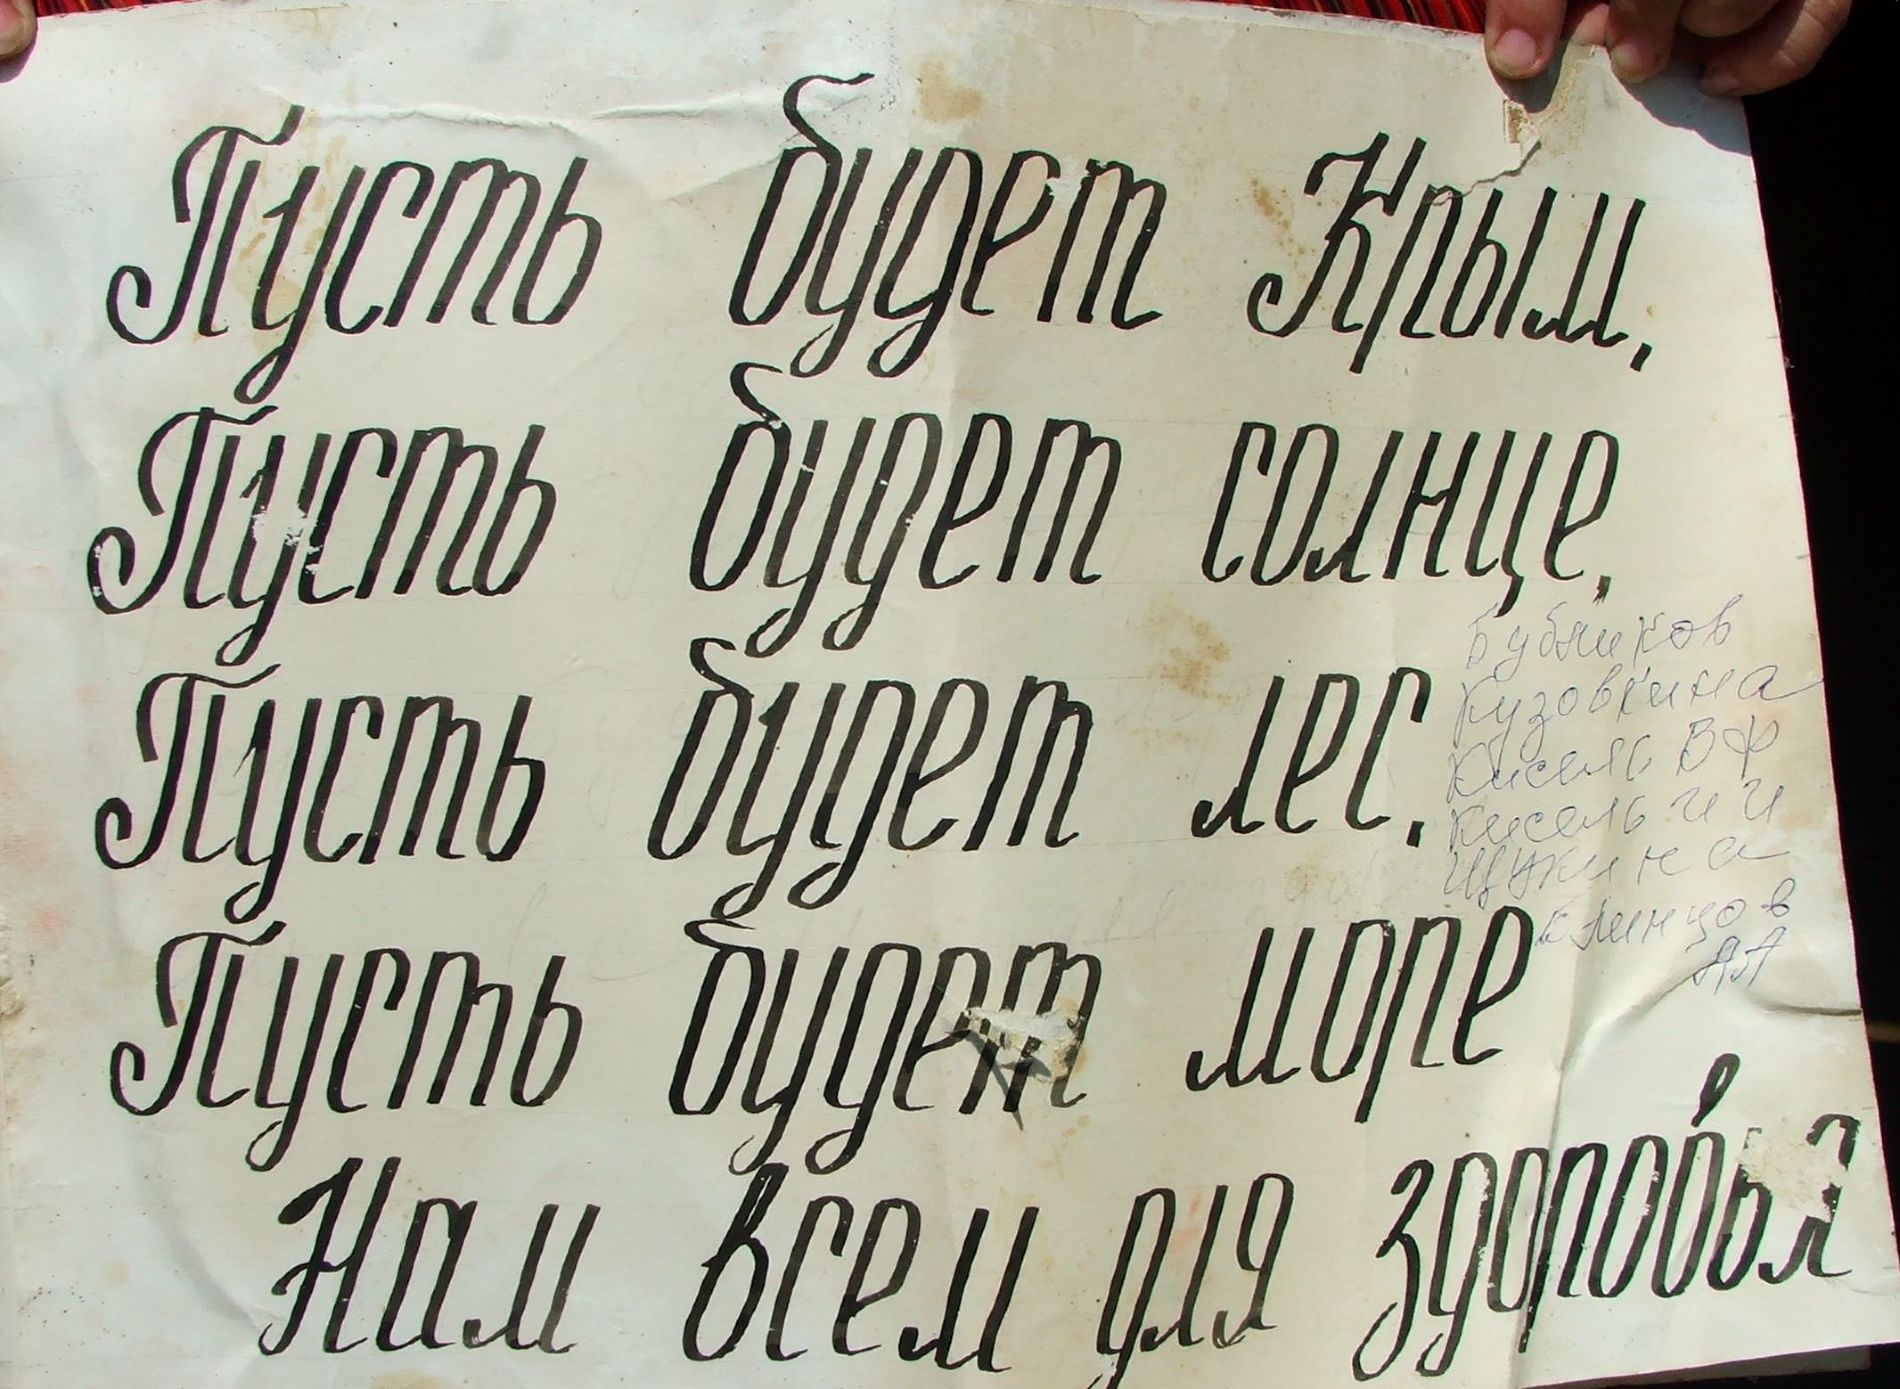 Пусть будет Крым,
Пусть будет солнце,
Пусть будет лес,
Пусть будет море
Нам всем для здоровья
Бубников
Кузовкина
Кисель В Ф
Кисель И И
Щукина
Клинцов
АА